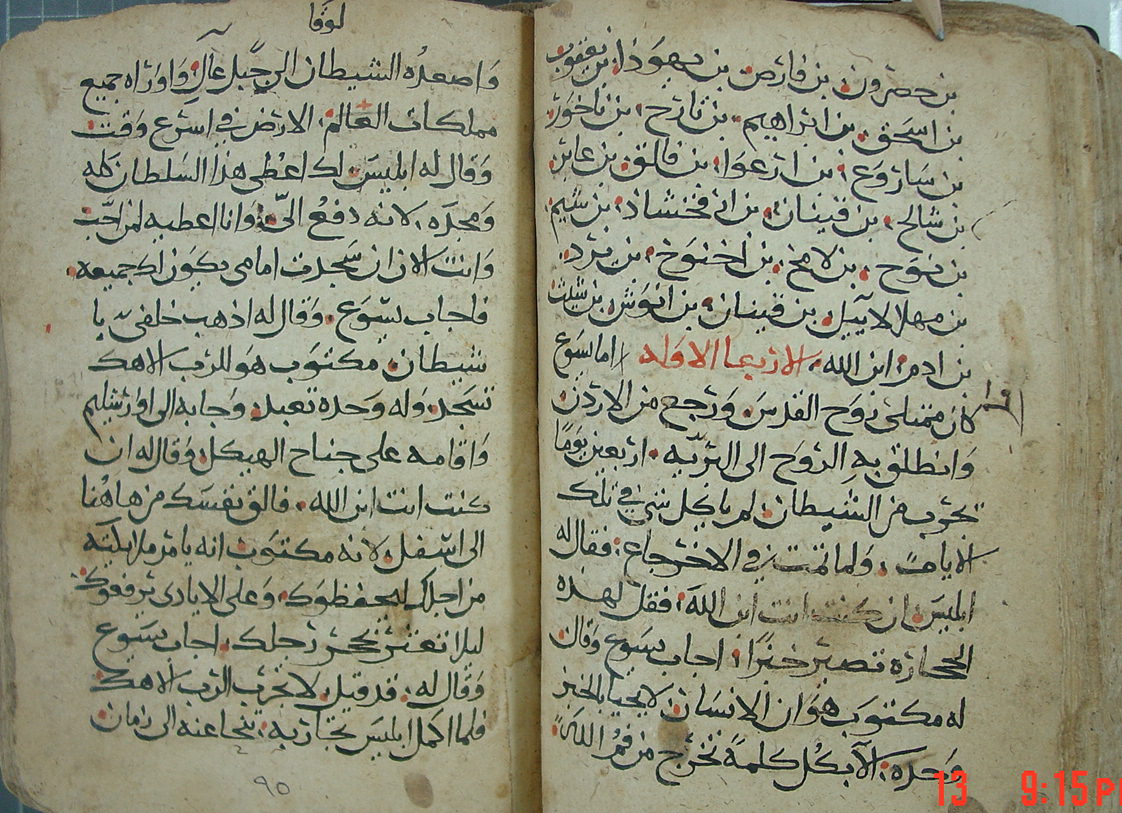 بن حصرون بن فارص بن يهوذا بن يعقوب
بن اسحق بن ابراهيم بن تارح بن ناخور
بن ساروع بن ارعوا بن فالق بن عابر
بن شالح بن قينان بن ارفخشاد بن شيم
بن نوح بن لامخ بن اخنوخ بن يرد
بن مهلالاييل بن قينان بن انوش بن شيث
بن ادم ابن الله الاربعا الاوله اما يسوع
كان ممتلى روح القدس ورجع من الاردن
وانطلق به الروح الى البريه اربعين يوما
يجرب من الشيطان لم ياكل شي في تلك
الايام ولما تمت في الاخر جاع فقال له
ابليس ان كنت انت ابن الله فقل لهذه
الحجاره تصير خبزا اجاب يسوع وقال
له مكتوب هو ان الانسان لا يحيا بالخبز
وحده الا بكل كلمة تخرج من فم الله
لوقا
واصعده الشيطان الى جبل عال واوراه جميع
مملكات العالم الارض في اسرع وقت
وقال له ابليس لك اعطى هذا السلطان كله
ومجده لانه دفع الي وانا اعطيه لمن احب
وانت الان ان سجدت امامي يكون لك جميعه
فاجاب يسوع وقال له اذهب خلفي يا
شيطان مكتوب هو للرب الاهك
تسجد وله وحده تعبد وجابه الى اورشليم
واقامه على جناح الهيكل وقال له ان
كنت انت ابن الله فالق نفسك من هاهنا
الى اسفل لانه مكتوب انه يامر ملايكته
من اجلك ليحفظوك وعلى الايادي ترفعوك
ليلا تعثر بحجر رجلك اجاب يسوع
وقال له قد قيل لا تجرب الرب الاهك
فلما اكمل ابليس تجاربه تنحا عنه الى زمان
٩٥
13 9:15 P